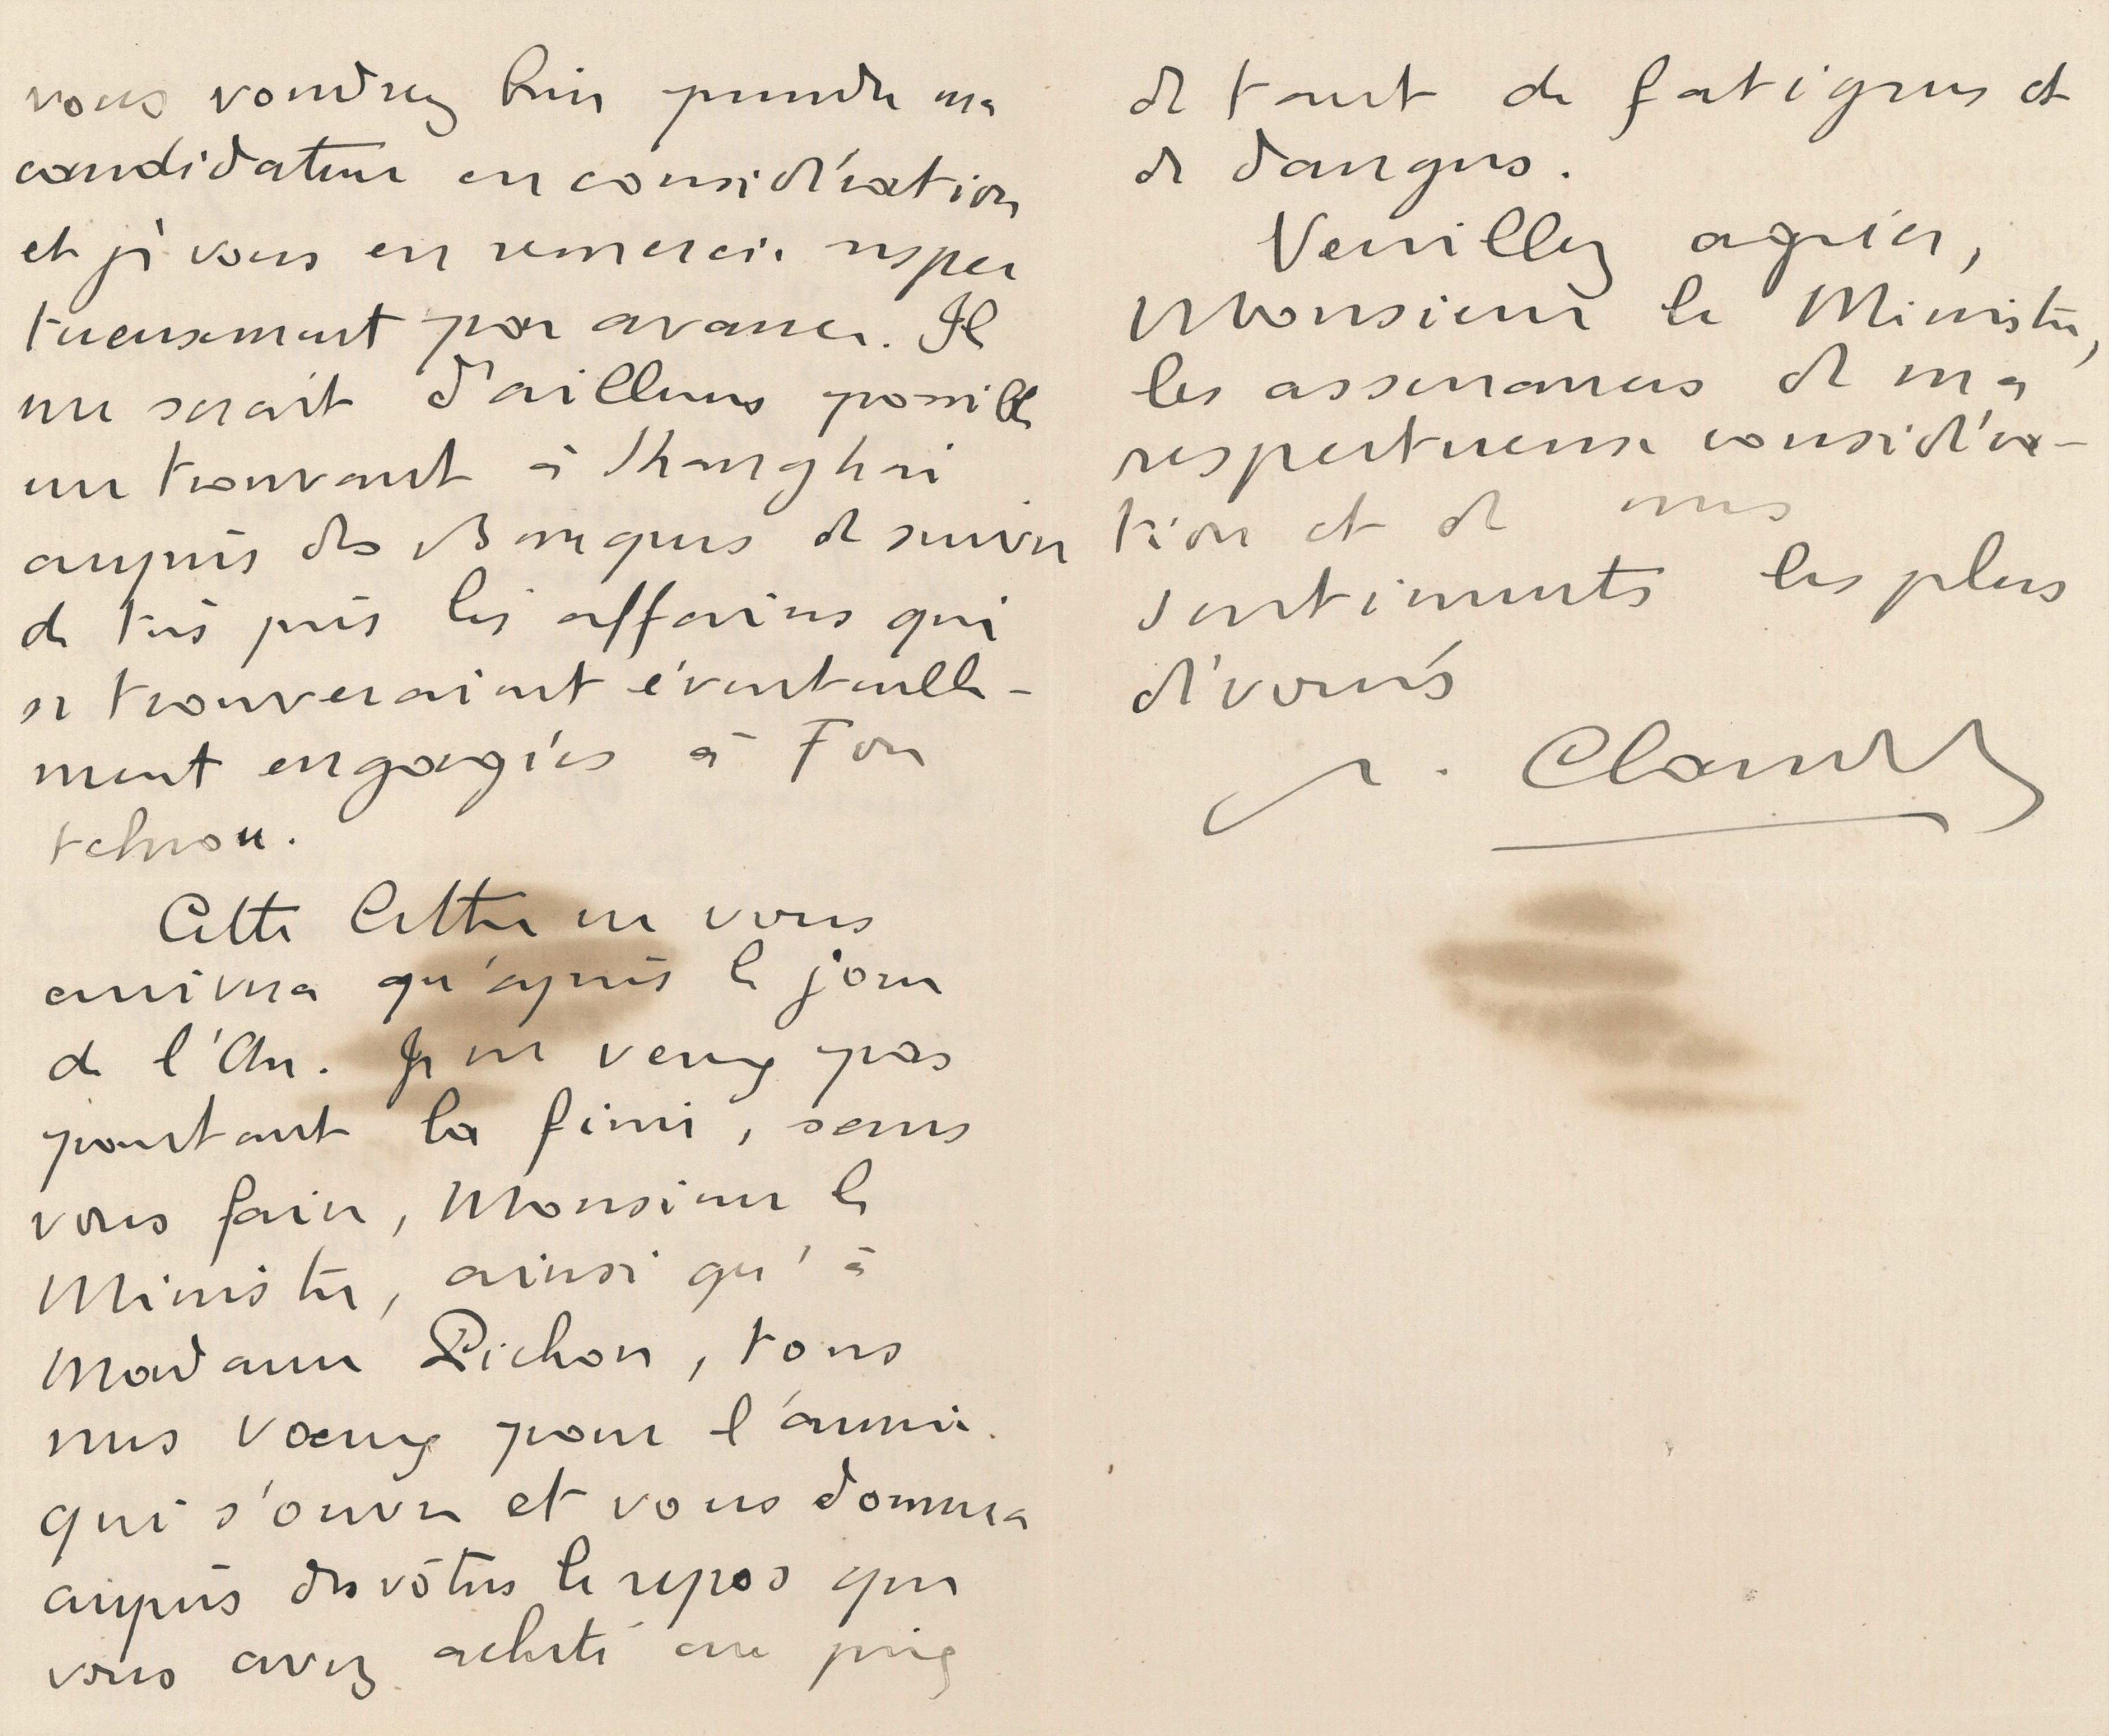 vous voudrez bien prendre ma
candidature en considération
et je vous en remercie respec
tueusement par avance. Il
me serait d'ailleurs possible
me trouvant à Shanghai
auprès des Banques de suivre
de très près les affaires qui
se trouveraient éventuelle-
ment engagées à Fou
tcheou.
Cette lettre ne vous
arrivera qu'après le jour
de l'An. Je ne veux pas
pourtant la finir, sans
vous faire, Monsieur le
Ministre, ainsi qu'à
Madame Pichon, tous
mes vœux pour l'année
qui s'ouvre et vous donnera
auprès des vôtres le repos que
vous avez acheté au prix
de tant de fatigues et
de dangers.
Veuillez agréer,
Monsieur le Ministre,
les assurances de ma
respectueuse considéra-
tion et de mes
sentiments les plus
dévoués
P. Claudel